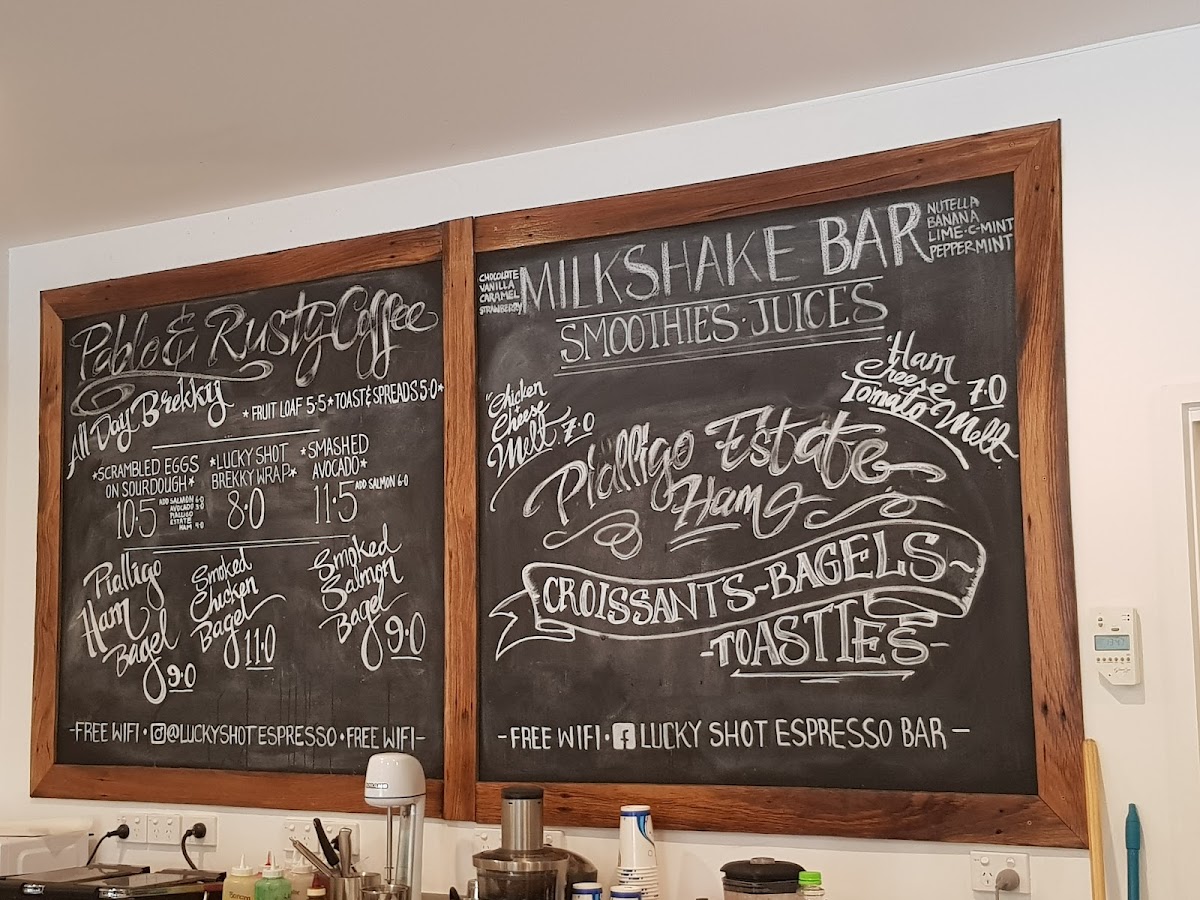 Pablo & Rusty Coffee
All Day Brekky
* FRUIT LOAF 5·5 * TOAST & SPREADS 5·0 *
*SCRAMBLED EGGS
ON SOURDOUGH*
10·5
ADD SALMON 6·0
AVOCADO 3·0
PIALLIGO
ESTATE
HAM 4·0
*LUCKY SHOT
BREKKY WRAP*
8·0
*SMASHED
AVOCADO*
11·5 ADD SALMON 6·0
Pialligo
Ham
Bagel
9·0
Smoked
Chicken
Bagel
11·0
Smoked
Salmon
Bagel
9·0
-FREE WIFI · @LUCKYSHOTESPRESSO · FREE WIFI-
CHOCOLATE
VANILLA
CARAMEL
STRAWBERRY
MILKSHAKE BAR
NUTELLA
BANANA
LIME·C-MINT
PEPPERMINT
SMOOTHIES · JUICES
"Chicken
+
Cheese
Melt 7·0
"Ham
Cheese
Tomato Melt"
7·0
Pialligo Estate
Ham
CROISSANTS~BAGELS~
-TOASTIES-
-FREE WIFI · f LUCKY SHOT ESPRESSO BAR-